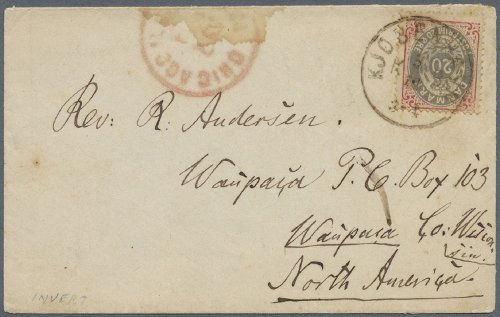 CHICAGO
KJØB
DANMARK
20
Rev: R. Andersen.
Waupaca P. O. Box 103
Waupaca Co: Wiscon
sin.
North America.
INVERT